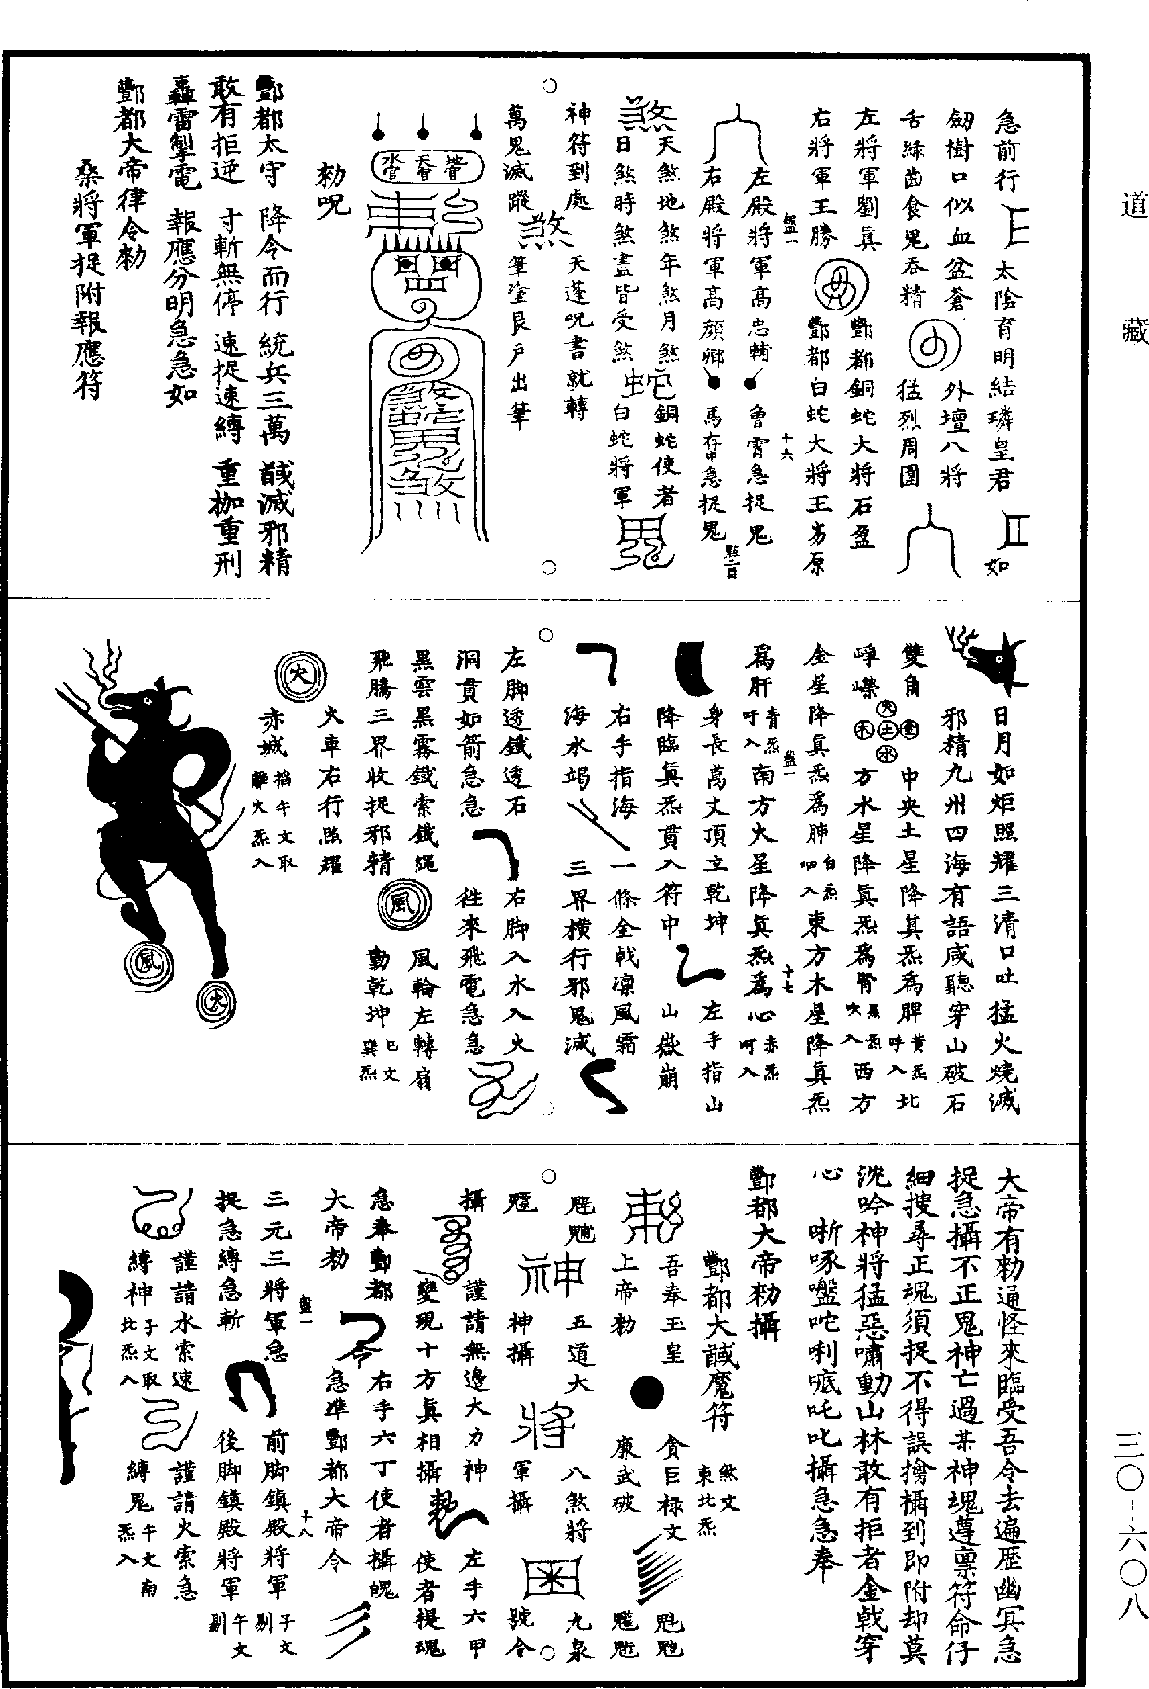 道藏
三〇-六〇八
急前行 太陰育明結璘皇君 如
劒樹口似血盆蒼 外壇八將
舌綠齒食鬼吞精 猛烈周圍
左將軍劉真 酆都銅蛇大將石盈
右將軍王勝 酆都白蛇大將王
左殿將軍高忠輔 急捉鬼
右殿將軍高顏卿 急捉鬼
煞 天煞地煞年煞月煞 銅蛇使者
日煞時煞盡皆受煞 蛇 白蛇將軍 鬼
神符到處 天蓬呪書就轉
萬鬼滅蹤 煞 筆塗艮戶出筆
勑呪
酆都太守 降令而行 統兵三萬 馘滅邪精
敢有拒逆 寸斬無停 速捉速縛 重枷重刑
轟雷掣電 報應分明急急如
酆都大帝律令勑
桑將軍捉附報應符
日月如炬照耀三清口吐猛火燒滅
邪精九州四海有語咸聽穿山破石
雙角 金 中央土星降真炁為脾 黃炁 呼入 北
崢嶸 火土木水 方水星降真炁為腎 黑炁 吹入 西方
金星降真炁為肺 白炁 呬入 東方木星降真炁
為肝 青炁 吁入 南方火星降真炁為心 赤炁 呵入
身長萬丈頂立乾坤 左手指山
降臨真炁貫入符中 山嶽崩
右手指海 一條金戟凜風霜
海水竭 三界橫行邪鬼滅
左脚透鐵透石 右脚入水入火
洞貫如箭急急 往來飛電急急
黑雲黑霧鐵索鐵繩 風輪左轉扇
飛騰三界收捉邪精 風 動乾坤 巳文 巽炁
火車右行照耀
火 赤城 掐午文取 離火炁入
風
火
大帝有勑通怪來臨受吾令去遍歷幽冥急
捉急攝不正鬼神亡過某神魂遵禀符命仔
細搜尋正魂須捉不得誤擒攝到即附却莫
沈吟神將猛惡嘯動山林敢有拒者金戟穿
心
酆都大帝勑攝
酆都大馘魔符
吾奉玉皇 貪巨祿文
上帝勑 廉武破
煞文 東北炁
五道大 八煞將 九泉
神 神攝 將 軍攝 號令
攝 謹請無邊大力神 左手六甲
變現十方真相攝 勑 使者提魂
急奉酆都 右手六丁使者攝魄
大帝勑 令 急准酆都大帝令
三元三將軍急 前脚鎮殿將軍 子文 剔
捉急縛急斬 後脚鎮殿將軍 午文 剔
謹請水索速 謹請火索急
縛神 子文取 北炁入 縛鬼 午文 南 炁入